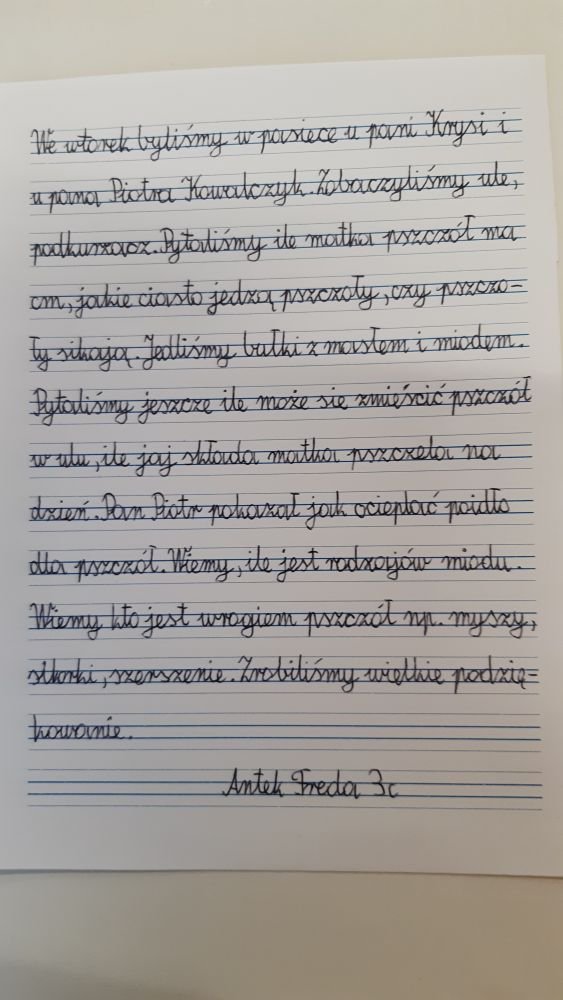 We wtorek byliśmy w pasiece u pani Krysi i
u pana Piotra Kowalczyk. Zobaczyliśmy ule,
podkurzacz. Pytaliśmy ile matka pszczół ma
cm, jakie ciasto jedzą pszczoły, czy pszczo-
ły sikają. Jedliśmy bułki z masłem i miodem.
Pytaliśmy jeszcze ile może się zmieścić pszczół
w ulu, ile jaj składa matka pszczela na
dzień. Pan Piotr pokazał jak ocieplać poidło
dla pszczół. Wiemy, ile jest rodzajów miodu.
Wiemy kto jest wrogiem pszczół np. myszy,
sikorki, szerszenie. Zrobiliśmy wielkie podzię-
kowanie.
Antek Freda 3c